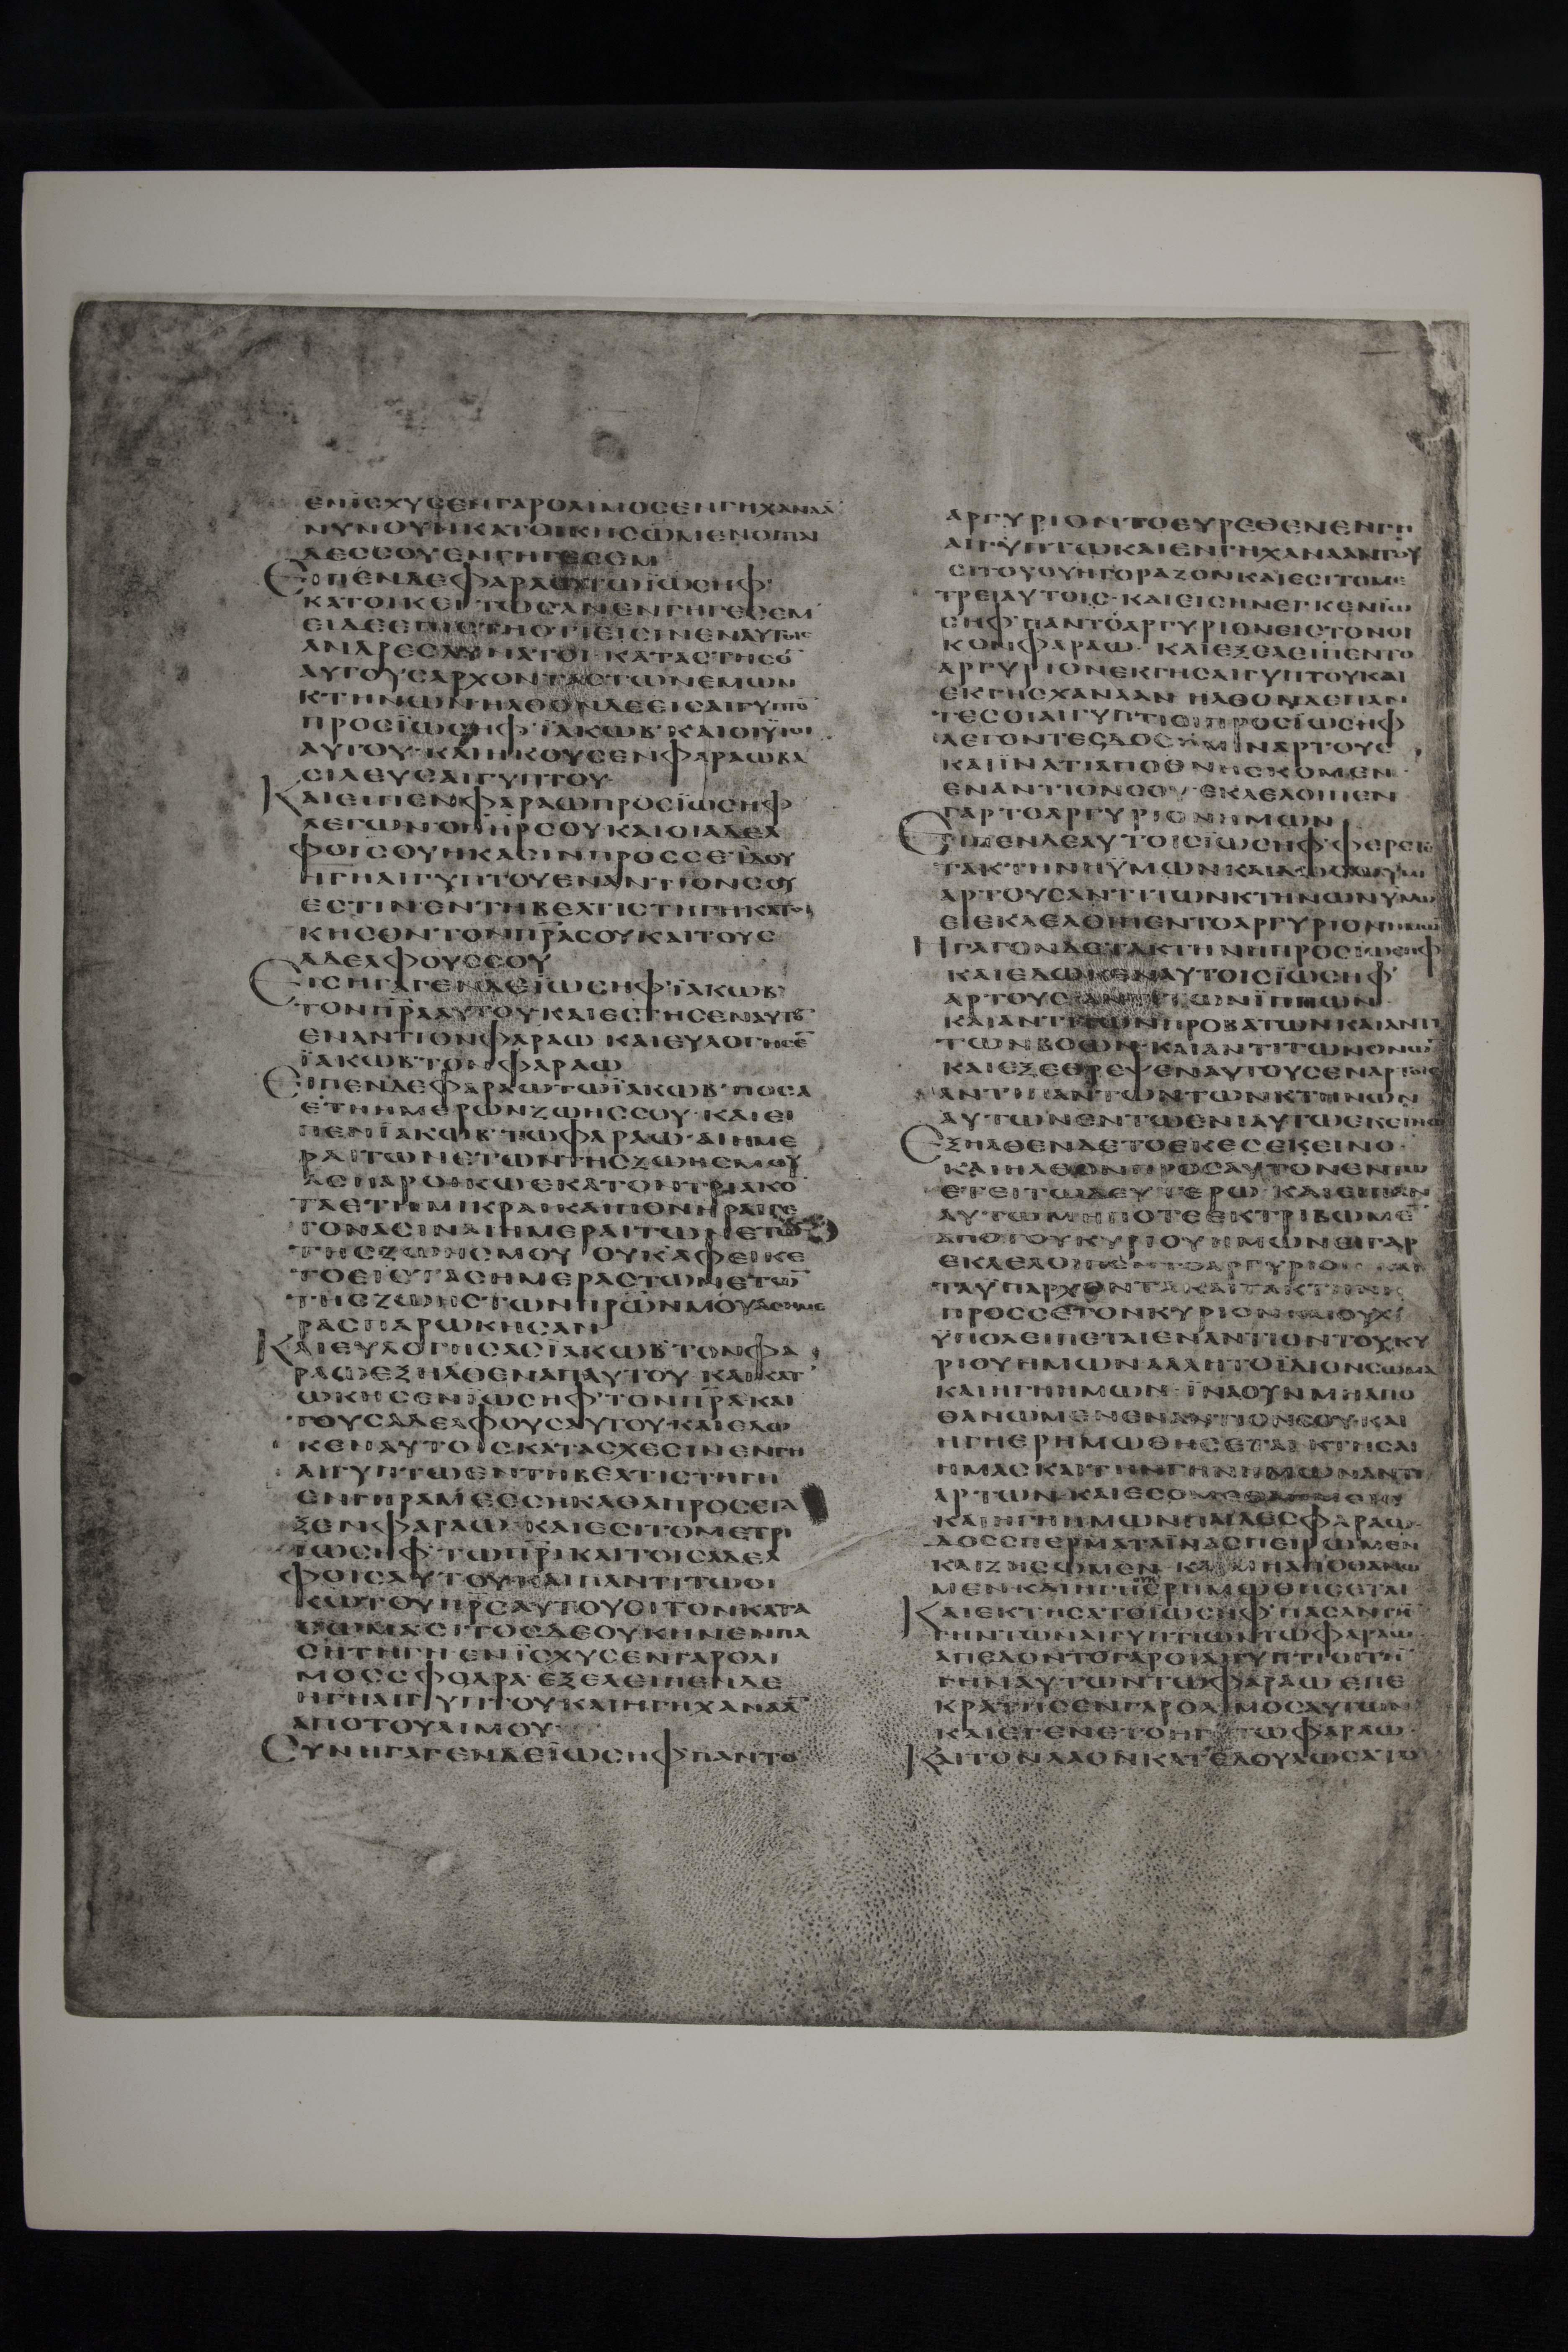 ΕΝΙΣΧΥΣΕΝΓΑΡΟΛΙΜΟΣΕΝΓΗΧΑΝΑΑ̅
ΝΥΝΟΥΝΚΑΤΟΙΚΗΣΩΜΕΝΟΙΠΑΙ
ΔΕΣΣΟΥΕΝΓΗΓΕΣΕΜ
ΕΙΠΕΝΔΕΦΑΡΑΩΤΩΪΩΣΗΦ
ΚΑΤΟΙΚΕΙΤΩΣΑΝΕΝΓΗΓΕΣΕΜ
ΕΙΔΕΕΠΙΣΤΗΟΤΙΕΙΣΙΝΕΝΑΥΤΟΙΣ
ΑΝΔΡΕΣΔΥΝΑΤΟΙ·ΚΑΤΑΣΤΗΣΟ̅
ΑΥΤΟΥΣΑΡΧΟΝΤΑΣΤΩΝΕΜΩΝ
ΚΤΗΝΩΝΗΛΘΟΝΔΕΕΙΣΑΙΓΥΠΤΟ̅
ΠΡΟΣΪΩΣΗΦ·ΪΑΚΩΒ·ΚΑΙΟΙΫΙΟΙ
ΑΥΤΟΥ·ΚΑΙΗΚΟΥΣΕΝΦΑΡΑΩΒΑ
ΣΙΛΕΥΣΑΙΓΥΠΤΟΥ
ΚΑΙΕΙΠΕΝΦΑΡΑΩΠΡΟΣΪΩΣΗΦ
ΛΕΓΩΝΟΠ̅Η̅Ρ̅ΣΟΥΚΑΙΟΙΑΔΕΛ
ΦΟΙΣΟΥΗΚΑΣΙΝΠΡΟΣΣΕ·ΪΔΟΥ
ΗΓΗΑΙΓΥΠΤΟΥΕΝΑΝΤΙΟΝΣΟΥ
ΕΣΤΙΝΕΝΤΗΒΕΛΤΙΣΤΗΓΗΚΑΤΟΙ
ΚΗΣΟΝΤΟΝΠ̅Ρ̅Α̅ΣΟΥΚΑΙΤΟΥΣ
ΑΔΕΛΦΟΥΣΣΟΥ
ΕΙΣΗΓΑΓΕΝΔΕΪΩΣΗΦ·ΪΑΚΩΒ
ΤΟΝΠ̅Ρ̅Α̅ΑΥΤΟΥΚΑΙΕΣΤΗΣΕΝΑΥΤΟ̅
ΕΝΑΝΤΙΟΝΦΑΡΑΩ·ΚΑΙΕΥΛΟΓΗΣΕ̅
ΪΑΚΩΒ·ΤΟΝΦΑΡΑΩ
ΕΙΠΕΝΔΕΦΑΡΑΩΤΩΪΑΚΩΒ·ΠΟΣΑ
ΕΤΗΗΜΕΡΩΝΖΩΗΣΣΟΥ·ΚΑΙΕΙ
ΠΕΝΪΑΚΩΒ·ΤΩΦΑΡΑΩ·ΑΙΗΜΕ
ΡΑΙΤΩΝΕΤΩΝΤΗΣΖΩΗΣΜΟΥ
ΑΣΠΑΡΟΙΚΩΕΚΑΤΟΝΤΡΙΑΚΟ̅
ΤΑΕΤΗΜΙΚΡΑΙΚΑΙΠΟΝΗΡΑΙΓΕ
ΓΟΝΑΣΙΝΑΙΗΜΕΡΑΙΤΩΝΕΤΩ̅
ΤΗΣΖΩΗΣΜΟΥ ΟΥΚΑΦΕΙΚΕ
ΤΟΕΙΣΤΑΣΗΜΕΡΑΣΤΩΝΕΤΩ̅
ΤΗΣΖΩΗΣΤΩΝΠ̅Ρ̅Ω̅ΝΜΟΥΑΣΗΜΕ
ΡΑΣΠΑΡΩΚΗΣΑΝ
ΚΑΙΕΥΛΟΓΗΣΑΣΪΑΚΩΒ·ΤΟΝΦΑ
ΡΑΩΕΞΗΛΘΕΝΑΠΑΥΤΟΥ·ΚΑΙΚΑΤ
ΩΚΗΣΕΝΪΩΣΗΦ·ΤΟΝΠ̅Ρ̅Α̅ΚΑΙ
ΤΟΥΣΑΔΕΛΦΟΥΣΑΥΤΟΥ·ΚΑΙΕΔΩ
ΚΕΝΑΥΤΟΙΣΚΑΤΑΣΧΕΣΙΝΕΝΓΗ
ΑΙΓΥΠΤΩΕΝΤΗΒΕΛΤΙΣΤΗΓΗ
ΕΝΓΗΡΑΜΕΣΣΗΚΑΘΑΠΡΟΣΕΤΑ
ΞΕΝΦΑΡΑΩ·ΚΑΙΕΣΙΤΟΜΕΤΡΙ
ΪΩΣΗΦ·ΤΩΠ̅Ρ̅Ι̅ΚΑΙΤΟΙΣΑΔΕΛ
ΦΟΙΣΑΥΤΟΥ·ΚΑΙΠΑΝΤΙΤΩΟΙ
ΚΩΤΟΥΠ̅Ρ̅Σ̅ΑΥΤΟΥΟΙΤΟΝΚΑΤΑ
ΣΩΜΑΣΙΤΟΣΔΕΟΥΚΗΝΕΝΠΑ
ΣΗΤΗΓΗΕΝΪΣΧΥΣΕΝΓΑΡΟΛΙ
ΜΟΣΣΦΟΔΡΑ·ΕΞΕΛΕΙΠΕΝΔΕ
ΗΓΗΑΙΓΥΠΤΟΥΚΑΙΗΓΗΧΑΝΑΑ̅
ΑΠΟΤΟΥΛΙΜΟΥ
ΣΥΝΗΓΑΓΕΝΔΕΪΩΣΗΦΠΑΝΤΟ
ΑΡΓΥΡΙΟΝΤΟΕΥΡΕΘΕΝΕΝΓΗ
ΑΙΓΥΠΤΩΚΑΙΕΝΓΗΧΑΝΑΑΝΤΟΥ
ΣΙΤΟΥΟΥΗΓΟΡΑΖΟΝΚΑΙΕΣΙΤΟΜΕ
ΤΡΕΙΑΥΤΟΙΣ·ΚΑΙΕΙΣΗΝΕΓΚΕΝΪΩ
ΣΗΦ·ΠΑΝΤΟΑΡΓΥΡΙΟΝΕΙΣΤΟΝΟΙ
ΚΟΝΦΑΡΑΩ· ΚΑΙΕΞΕΛΕΙΠΕΝΤΟ
ΑΡΓΥΡΙΟΝΕΚΓΗΣΑΙΓΥΠΤΟΥΚΑΙ
ΕΚΓΗΣΧΑΝΑΑΝ ΗΛΘΟΝΔΕΠΑΝ
ΤΕΣΟΙΑΙΓΥΠΤΙΟΙΠΡΟΣΪΩΣΗΦ
ΛΕΓΟΝΤΕΣΔΟΣΗΜΙΝΑΡΤΟΥΣ
ΚΑΙΪΝΑΤΙΑΠΟΘΝΗΣΚΟΜΕΝ
ΕΝΑΝΤΙΟΝΣΟΥ·ΕΚΛΕΛΟΙΠΕΝ
ΓΑΡΤΟΑΡΓΥΡΙΟΝΗΜΩΝ
ΕΙΠΕΝΔΕΑΥΤΟΙΣΪΩΣΗΦ·ΦΕΡΕΤΕ
ΤΑΚΤΗΝΗΫΜΩΝΚΑΙΔΩΣΩΫΜΙΝ
ΑΡΤΟΥΣΑΝΤΙΤΩΝΚΤΗΝΩΝΫΜΩ̅
ΕΙΕΚΛΕΛΟΙΠΕΝΤΟΑΡΓΥΡΙΟΝΫΜΩ̅
ΗΓΑΓΟΝΔΕΤΑΚΤΗΝΗΠΡΟΣΪΩΣΗΦ
ΚΑΙΕΔΩΚΕΝΑΥΤΟΙΣΪΩΣΗΦ
ΑΡΤΟΥΣΑΝΤΙΤΩΝΪΠΠΩΝ
ΚΑΙΑΝΤΙΤΩΝΠΡΟΒΑΤΩΝΚΑΙΑΝΤΙ
ΤΩΝΒΟΩΝ·ΚΑΙΑΝΤΙΤΩΝΟΝΩ̅
ΚΑΙΕΞΕΘΡΕΨΕΝΑΥΤΟΥΣΕΝΑΡΤΟΙΣ
ΑΝΤΙΠΑΝΤΩΝΤΩΝΚΤΗΝΩΝ
ΑΥΤΩΝΕΝΤΩΕΝΙΑΥΤΩΕΚΕΙΝΩ
ΕΞΗΛΘΕΝΔΕΤΟΕΤΟΣΕΚΕΙΝΟ
ΚΑΙΗΛΘΟΝΠΡΟΣΑΥΤΟΝΕΝΤΩ
ΕΤΕΙΤΩΔΕΥΤΕΡΩ ΚΑΙΕΙΠΑΝ
ΑΥΤΩΜΗΠΟΤΕΕΚΤΡΙΒΩΜΕ̅
ΑΠΟΤΟΥΚΥΡΙΟΥΗΜΩΝΕΙΓΑΡ
ΕΚΛΕΛΟΙΠΕΝΤΟΑΡΓΥΡΙΟΝ ΚΑΙ
ΤΑΫΠΑΡΧΟΝΤΑΚΑΙΤΑΚΤΗΝΗ
ΠΡΟΣΣΕΤΟΝΚΥΡΙΟΝΚΑΙΟΥΧΙ
ΫΠΟΛΕΙΠΕΤΑΙΕΝΑΝΤΙΟΝΤΟΥΚΥ
ΡΙΟΥΗΜΩΝΑΛΛΗΤΟΪΔΙΟΝΣΩΜΑ
ΚΑΙΗΓΗΗΜΩΝ·ΪΝΑΟΥΝΜΗΑΠΟ
ΘΑΝΩΜΕΝΕΝΑΝΤΙΟΝΣΟΥ·ΚΑΙ
ΗΓΗΕΡΗΜΩΘΗΣΕΤΑΙ ΚΤΗΣΑΙ
ΗΜΑΣΚΑΙΤΗΝΓΗΝΗΜΩΝΑΝΤΙ
ΑΡΤΩΝ·ΚΑΙΕΣΟΜΕΘΑΗΜΕΙΣ
ΚΑΙΗΓΗΗΜΩΝΠΑΙΔΕΣΦΑΡΑΩ
ΔΟΣΣΠΕΡΜΑΤΑΪΝΑΣΠΕΙΡΩΜΕΝ
ΚΑΙΖΗΣΩΜΕΝ·ΚΑΙΜΗΑΠΟΘΑΝΩ
ΜΕΝ·ΚΑΙΗΓΗΟΥΚΕΡΗΜΩΘΗΣΕΤΑΙ
ΚΑΙΕΚΤΗΣΑΤΟΪΩΣΗΦ·ΠΑΣΑΝΤΗ̅
ΓΗΝΤΩΝΑΙΓΥΠΤΙΩΝΤΩΦΑΡΑΩ
ΑΠΕΔΟΝΤΟΓΑΡΟΙΑΙΓΥΠΤΙΟΙΤΗ̅
ΓΗΝΑΥΤΩΝΤΩΦΑΡΑΩ·ΕΠΕ
ΚΡΑΤΗΣΕΝΓΑΡΟΛΙΜΟΣΑΥΤΩΝ
ΚΑΙΕΓΕΝΕΤΟΗΓΗΤΩΦΑΡΑΩ
ΚΑΙΤΟΝΛΑΟΝΚΑΤΕΔΟΥΛΩΣΑΤΟ